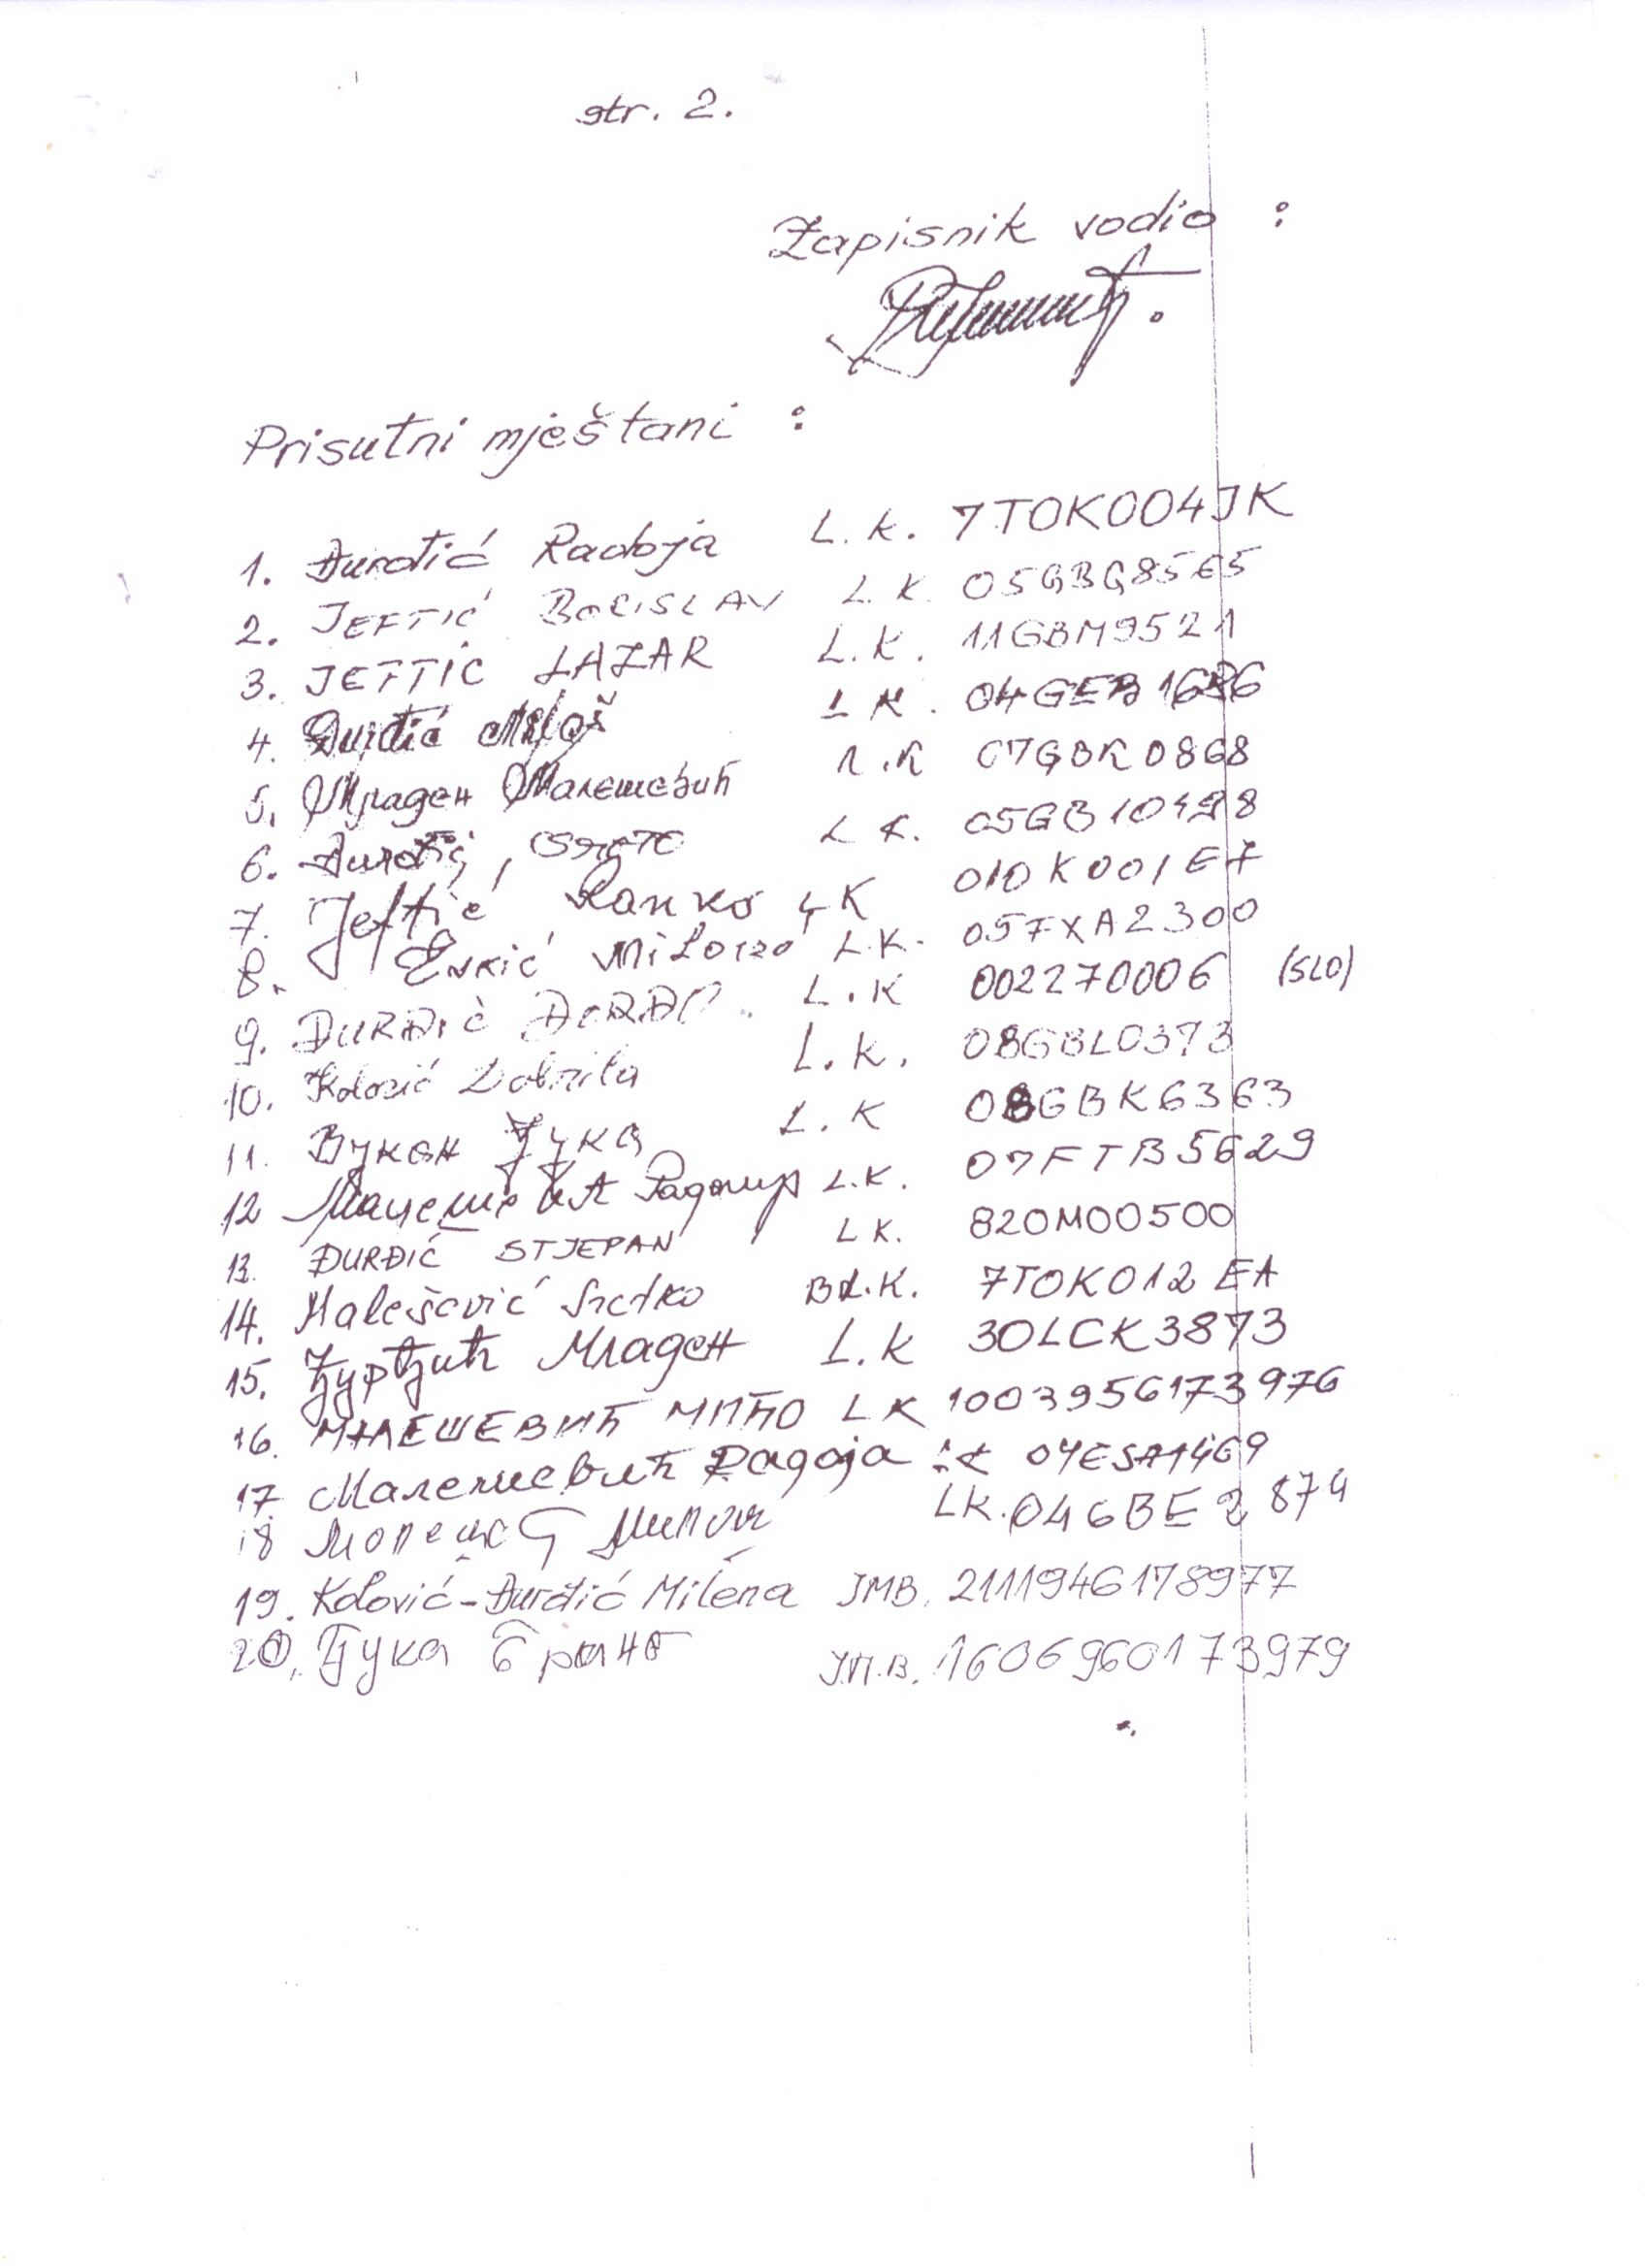 str. 2.
Zapisnik vodio :
Prisutni mještani :
1. Đurđić Radoja L.K. 7TOK004JK
2. JEFTIĆ BORISLAV L.K. 05GBG8565
3. JEFTIĆ LAZAR L.K. 11GBM9521
4. Đurđić Miloš L.K. 04GEB1686
5. Младен Малешевић Л.К 07GBK0868
6. Đurđić, L.K. 05GB10498
7. Jeftić Ranko LK 010K001E7
8. Milorad L.K. 05FXA2300
9. ĐURĐIĆ ĐORĐO. L.K 002270006 (SLO)
10. Kolović Dobrila L.K. 08GBL0373
11. Вукан Ђука L.K 08GBK6363
12 Малешевић L.K. 07FTB5629
13. ĐURĐIĆ STJEPAN LK. 820M00500
14. Malešević Sretko BL.K. 7TOK012EA
15. Ђурђић Младен L.K 30LCK3873
16. МАЛЕШЕВИЋ МИЋО LK 1003956173976
17. Малешевић Радоја LK 04ESA1469
18 Милош LK. 04GBE2874
19. Kolović-Đurđić Milena JMB. 2111946178977
20. Ђука Бране J.M.B. 1606960173979